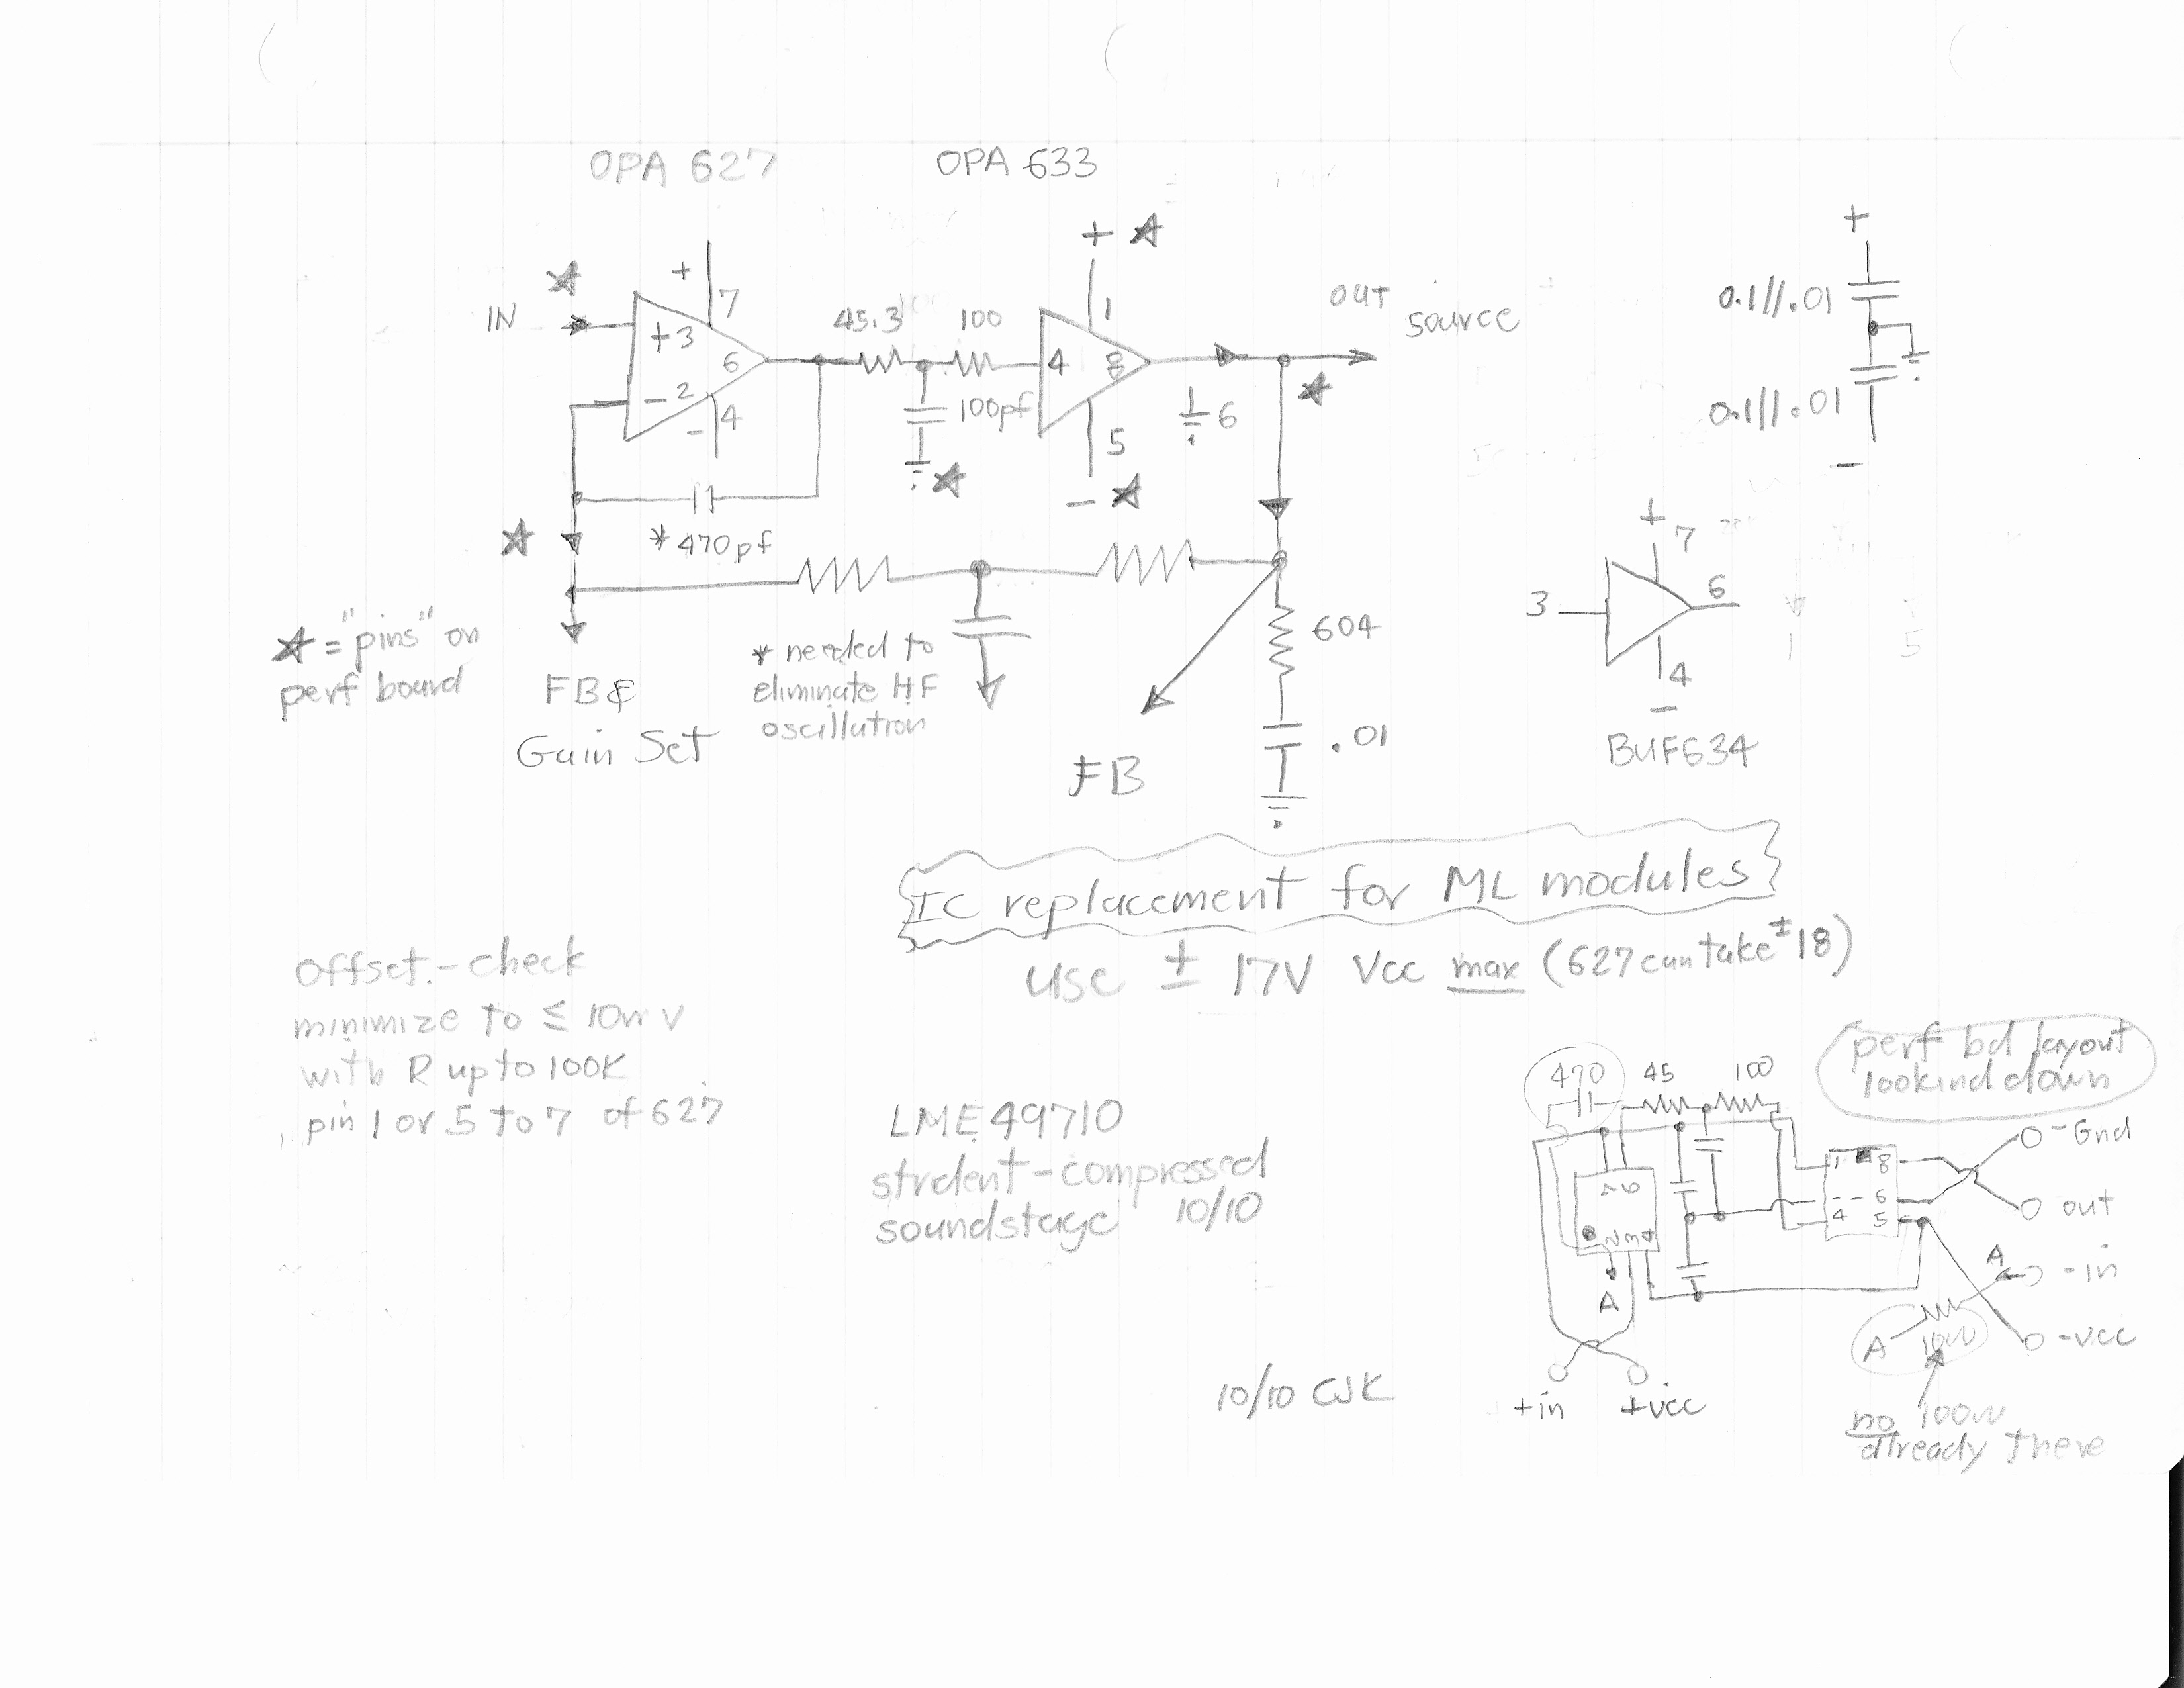 OPA 627
OPA 633
+ ★
★
+
7
IN
+3
6
-2
4
-
45.3
100
100pf
★
4
1
8
5
- ★
⏚ 6
out
source
★
+
0.1//.01
0.1//.01
-
★
*470pf
★ = "pins" on
perf board
FB &
Gain Set
* needed to
eliminate HF
oscillation
604
.01
FB
+
7
3
6
4
-
BUF634
5
IC replacement for ML modules
use ± 17V Vcc max (627 can take ±18)
Offset - check
minimize to ≤ 10mv
with R up to 100K
pin 1 or 5 to 7 of 627
LME49710
strident - compressed
soundstage 10/10
10/10 CJK
perf bd layout
lookind down
470
45
100
7 6
2 3 4
A
1 8
-- 6
4 5
O - Gnd
O out
A
O - in
O - vcc
A
100
+in
+vcc
no 100ω
already there